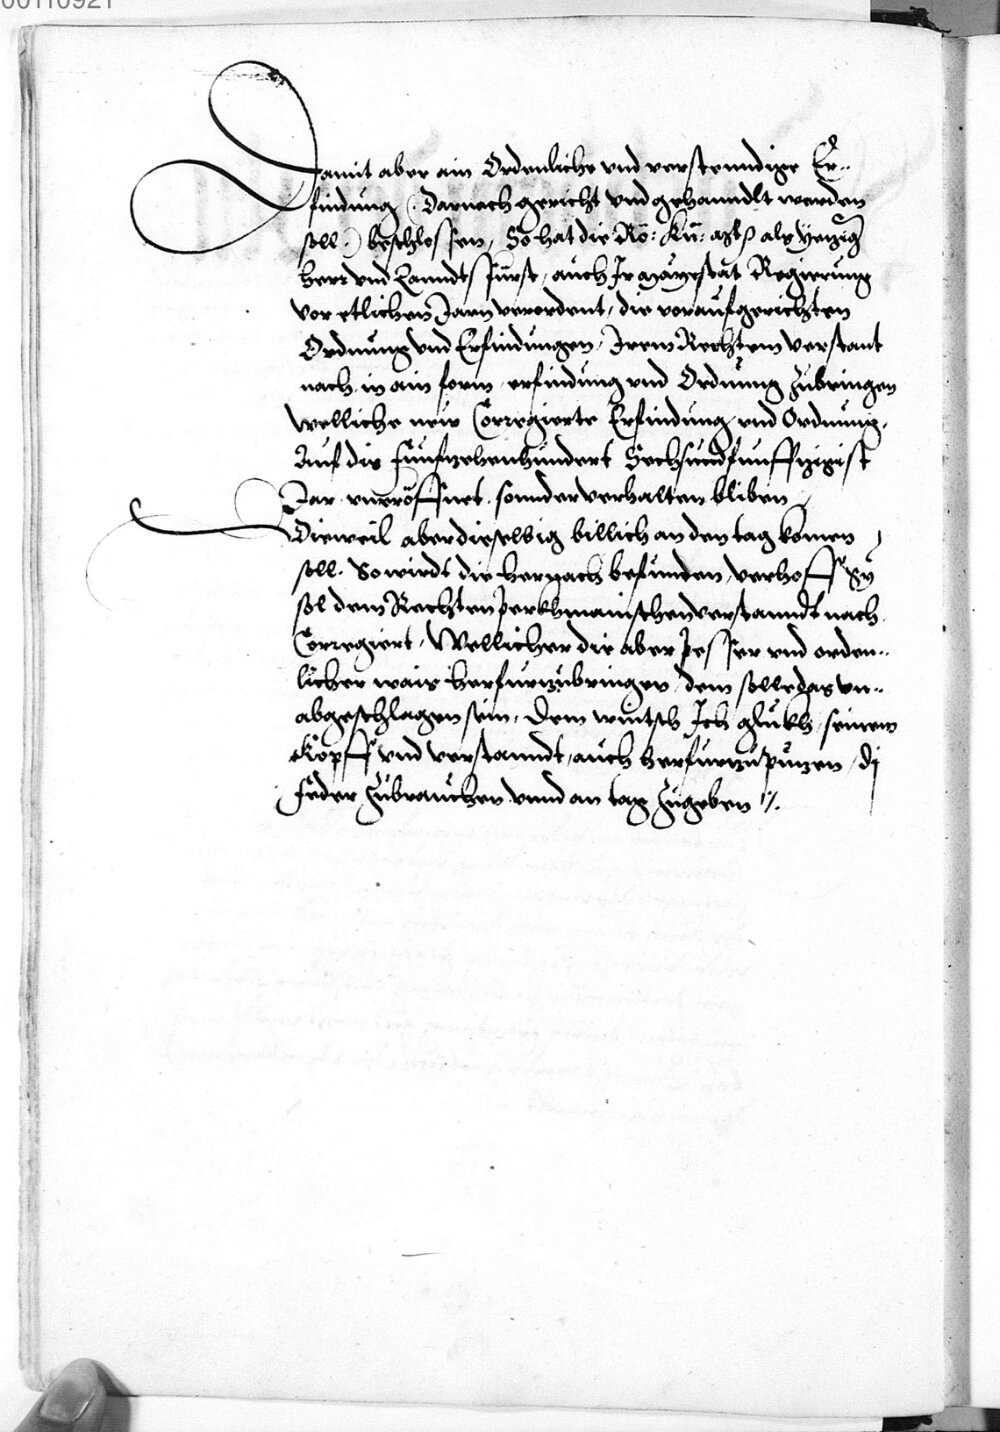 00110921
Damit aber ain Ordenliche vnd verstenndige Er-
findung (Darnach gericht vnd gehanndlt werden
soll.) beschlossen, So hat die Rö: Kü: Mt als yetzig
herr vnd Lanndtsfürst, auch Ir Mayestät Regierung
vor etlichen Jarn verordent, die vor aufgerichten
Ordnung vnd Erfindungen, Irem Rechtem verstant
nach in ain form, erfindung vnd Ordnung zubringen
welliche new Corregierte Erfindung vnd Ordnung,
Auf die Fünfzehenhundert Sechsundfunffzigist
Jar vneröffnet, sonnder verhalten bliben,
Dieweil aber dieselbig billich an den tag komen
soll. So wirdt die hernach befunden, verhoff Sy
sol dem Rechten Perkhmainischen verstanndt nach
Corregiert, Wellicher die aber pesser vnd orden-
licher weis herfurzubringen, dem solle das vn-
abgeschlagen sein, Dem wintsch Ich glükh, seinem
Kopff vnd verstanndt, auch herfurzupuzen, dj
Feder zubrauchen vnnd an tag zugeben